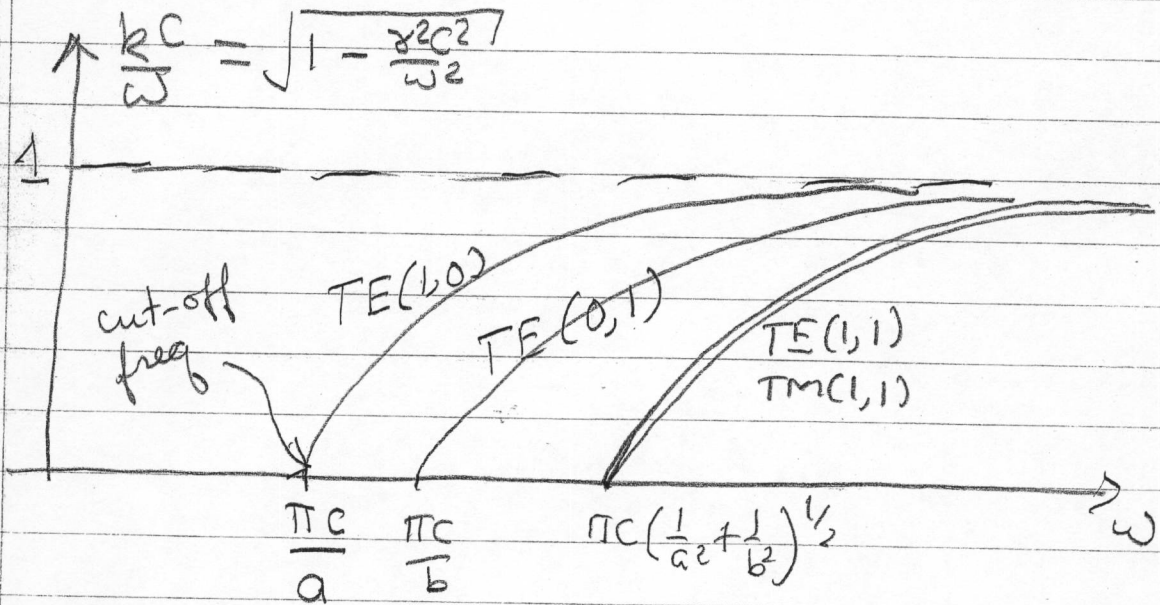 kc/ω = √(1 − γ²c²/ω²)
1
TE(1,0)
cut-off
freq
TE(0,1)
TE(1,1)
TM(1,1)
πc/a
πc/b
πc(1/a² + 1/b²)^1/2
ω